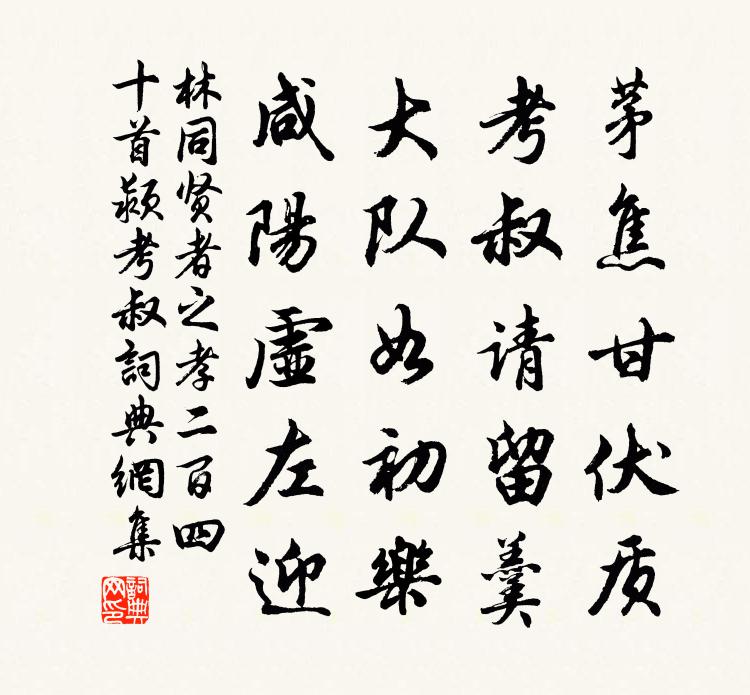 茅焦甘伏质
考叔请留羹
大队如初樂
咸陽虛左迎
林同贤者之孝二百四
十首颍考叔詞典網集
詞典
网印